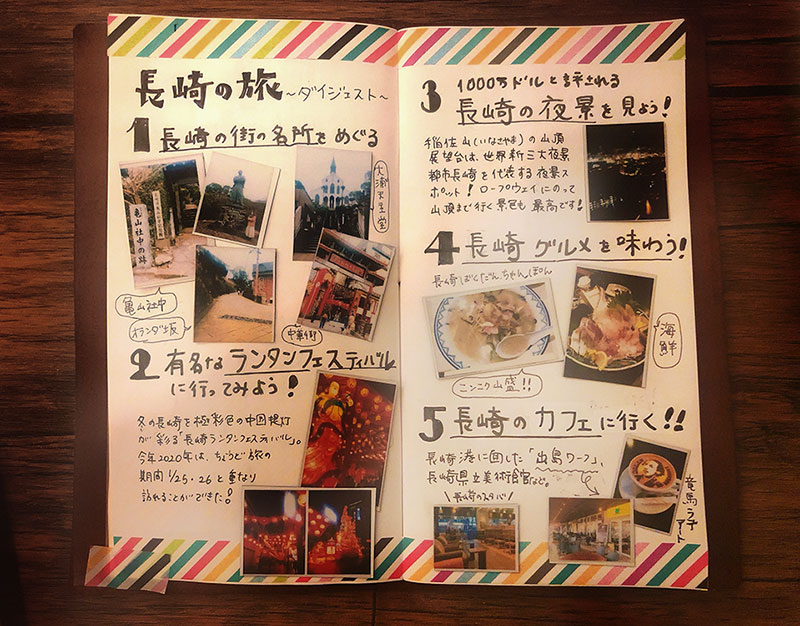 長崎の旅 ~ダイジェスト~
1 長崎の街の名所をめぐる
大浦天主堂
亀山社中の跡
亀山社中
オランダ坂
中華街
2 有名なランタンフェスティバル
に行ってみよう!
冬の長崎を極彩色の中国提灯
が彩る「長崎ランタンフェスティバル」。
今年2020年は、ちょうど旅の
期間1/25・26と重なり
訪れることができた!
3 1000万ドルと評される
長崎の夜景を見よう!
稲佐山(いなさやま)の山頂
展望台は、世界新三大夜景
都市長崎を代表する夜景ス
ポット!ロープウェイにのって
山頂まで行く景色も最高です!
4 長崎グルメを味わう!
長崎ばくだんちゃんぽん
海鮮
ニンニク山盛!!
5 長崎のカフェに行く!!
長崎港に面した「出島ワーフ」、
長崎県立美術館など。
\長崎のスタバ/
竜馬ラテ
アート